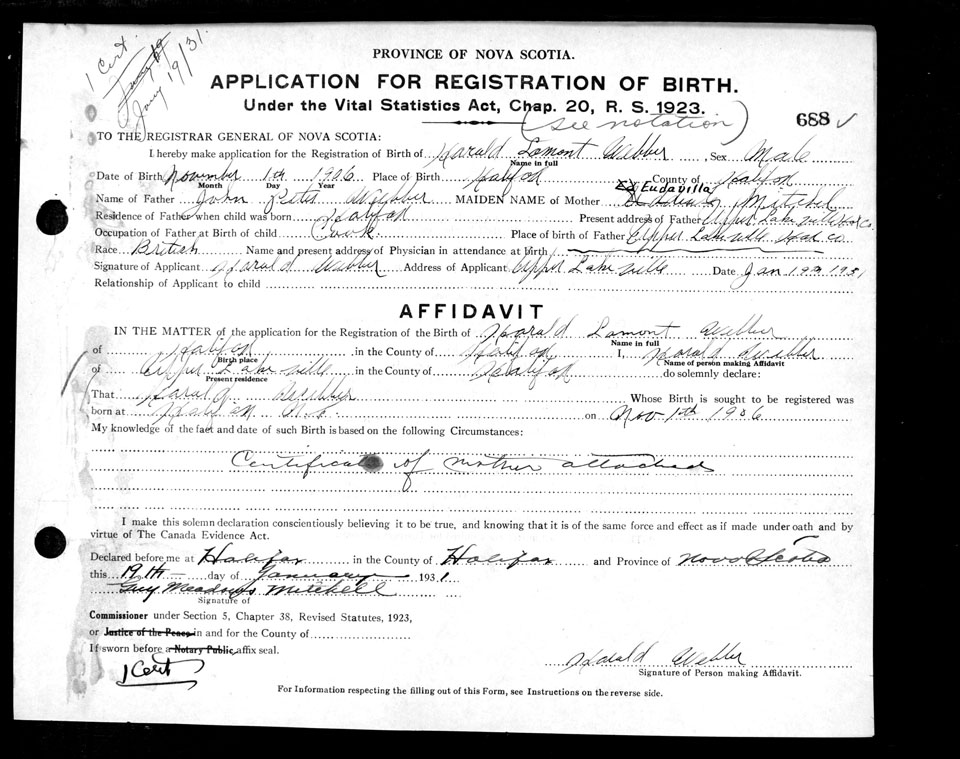 1 Cert.
Jany 19/31.
PROVINCE OF NOVA SCOTIA.
APPLICATION FOR REGISTRATION OF BIRTH.
Under the Vital Statistics Act, Chap. 20, R. S. 1923.
(see notation)
688
TO THE REGISTRAR GENERAL OF NOVA SCOTIA:
I hereby make application for the Registration of Birth of Harald Lamont Webber Sex Male
Name in full
Date of Birth November 1th 1906 Place of Birth Halifax County of Halifax
Month Day Year
Eudavilla
Name of Father John Peter Webber MAIDEN NAME of Mother Mitchel
Residence of Father when child was born Halifax Present address of Father Upper Lakeville Hax Co.
Occupation of Father at Birth of child Cook Place of birth of Father Upper Lakeville Hax Co
Race British Name and present address of Physician in attendance at birth
Signature of Applicant Harald Webber Address of Applicant Upper Lakeville Date Jan 19 1931
Relationship of Applicant to child
AFFIDAVIT
IN THE MATTER of the application for the Registration of the Birth of Harald Lamont Webber
Name in full
of Halifax in the County of Halifax I, Harald Webber
Birth place Name of person making Affidavit
of Upper Lakeville in the County of Halifax do solemnly declare:
Present residence
That Harald Webber Whose Birth is sought to be registered was
born at Halifax N.S. on Nov 1th 1906
My knowledge of the fact and date of such Birth is based on the following Circumstances:
Certificate of mother attached
I make this solemn declaration conscientiously believing it to be true, and knowing that it is of the same force and effect as if made under oath and by
virtue of The Canada Evidence Act.
Declared before me at Halifax in the County of Halifax and Province of Nova Scotia
this 19th day of January 1931.
Guy Meadows Mitchell
Signature of
Commissioner under Section 5, Chapter 38, Revised Statutes, 1923,
or Justice of the Peace in and for the County of
If sworn before a Notary Public, affix seal.
1 Cert
Harald Webber
Signature of Person making Affidavit.
For Information respecting the filling out of this Form, see Instructions on the reverse side.